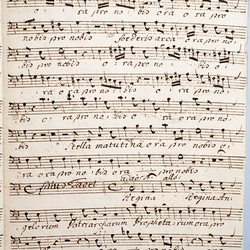 o ra pro no bis o ra o ra pro
nobis pro nobis foederis arca ra pro no
bis pro nobis o ra pro no bis o
ra o ra pro no bis o ra pro nobis o ra pro no
bis Stella matutina o ra pro nobis o
ra pro no bis o ra pro nobis
Salus tacet
Regina Regina An
gelorum Patriarcharum Prophetarum ora pro